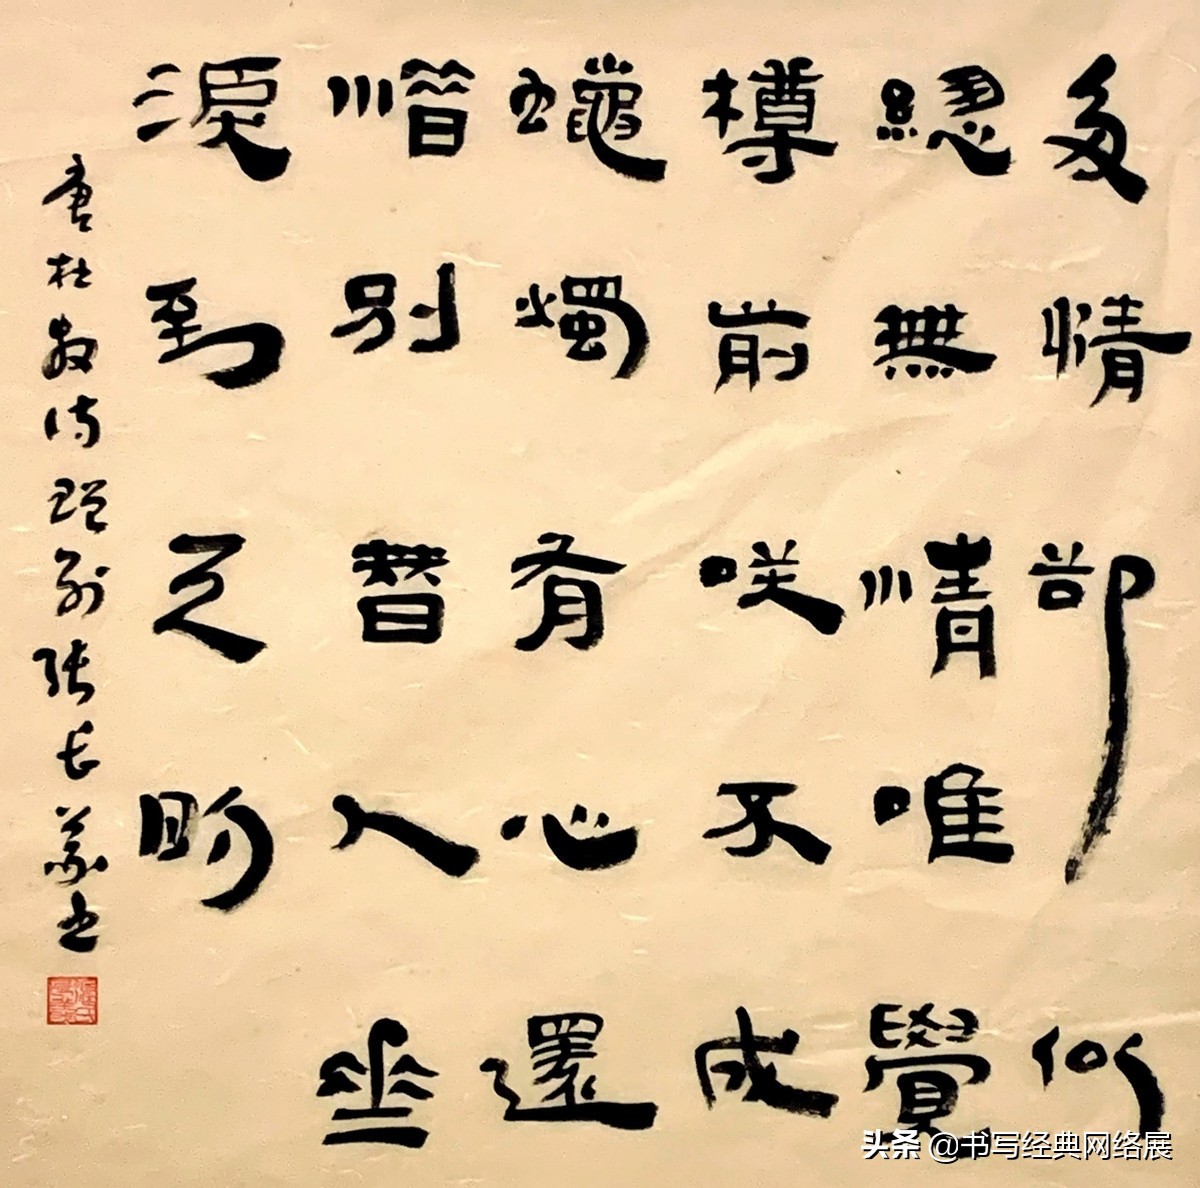 多情卻似
總無情唯覺
樽前咲不成
蠟燭有心還
惜別替人垂
淚到天明
唐杜牧诗赠别张长义书
头条 @书写经典网络展